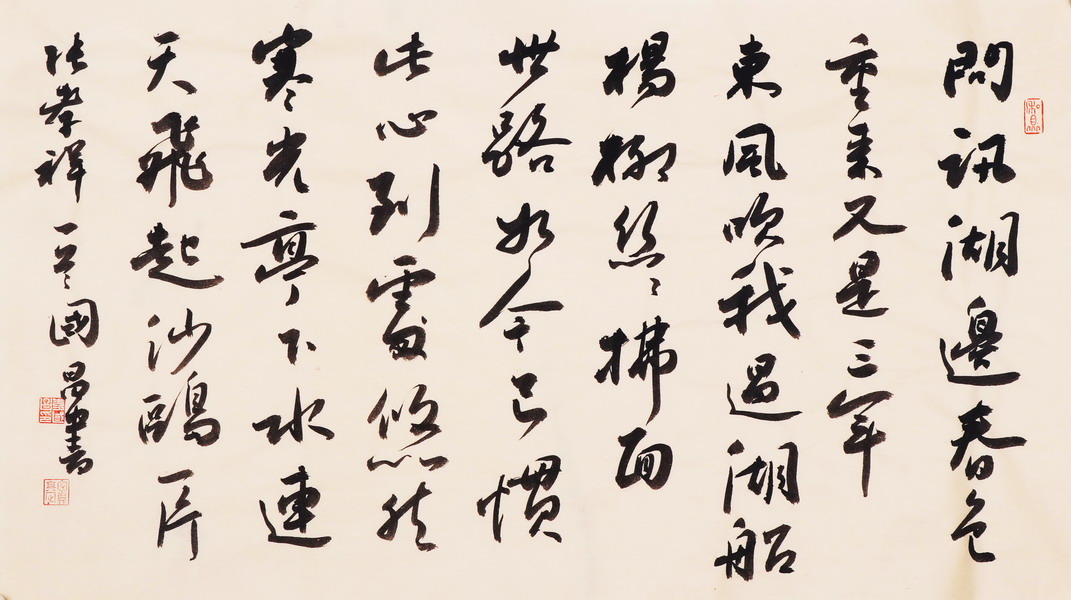 問訊湖邊春色
重来又是三年
東風吹我過湖船
楊柳絲々拂面
世路如今已慣
此心到處悠然
寒光亭下水連
天飛起沙鷗一片
張孝祥 國昌書